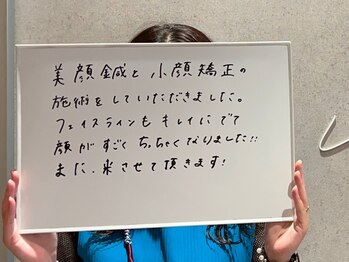 美顔鍼と小顔矯正の
施術をしていただきました。
フェイスラインもキレイにでて
顔がすごくちっちゃくなりました!!
また、来させて頂きます!